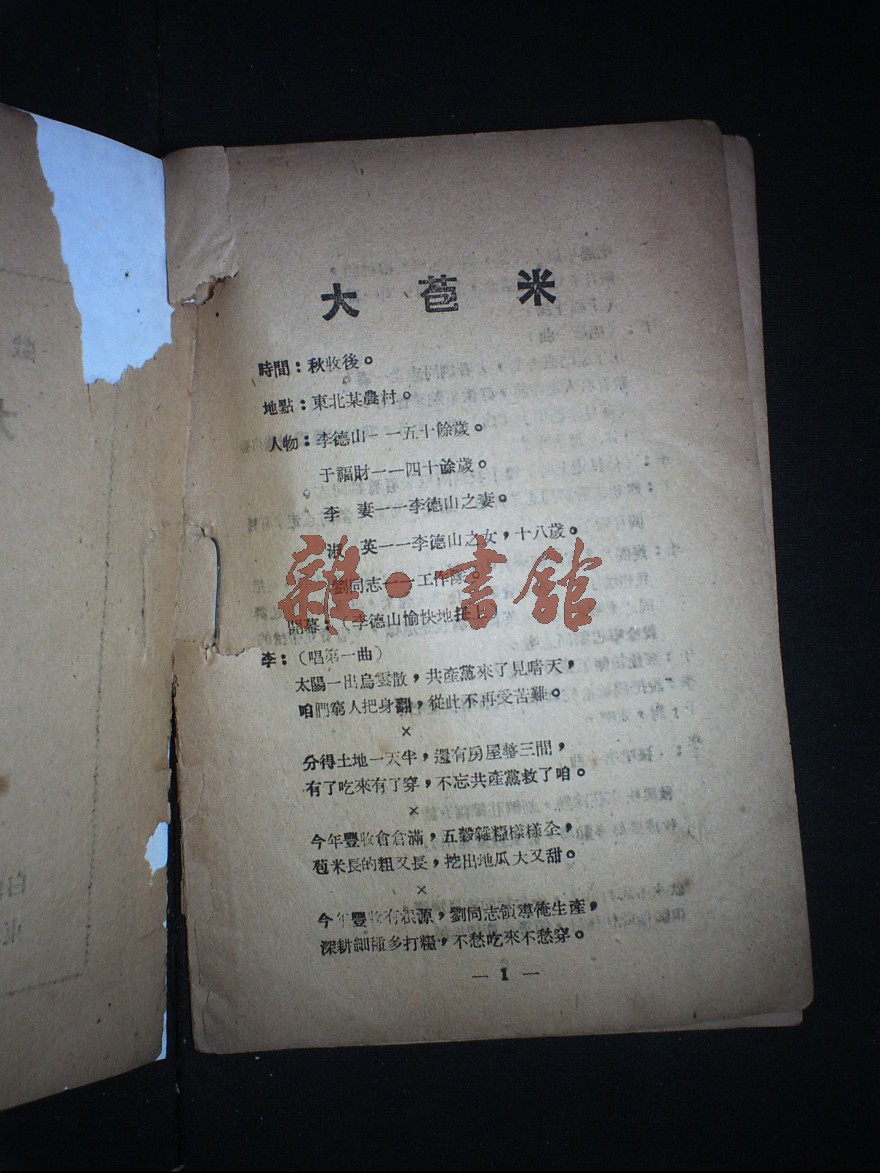 大苞米
時間：秋收後。
地點：東北某農村。
人物：李德山——五十餘歲。
于福財——四十餘歲。
李　妻——李德山之妻。
淑　英——李德山之女，十八歲。
劉同志——工作隊。
開幕：（李德山愉快地扭上）
李：（唱第一曲）
太陽一出烏雲散，共產黨來了見晴天，
咱們窮人把身翻，從此不再受苦難。
×
分得土地一天半，還有房屋整三間，
有了吃來有了穿，不忘共產黨救了咱。
×
今年豐收倉倉滿，五穀雜糧樣樣全，
苞米長的粗又長，挖出地瓜大又甜。
×
今年豐收有根源，劉同志領導俺生產，
深耕細種多打糧，不愁吃來不愁穿。
— 1 —
雜·書館